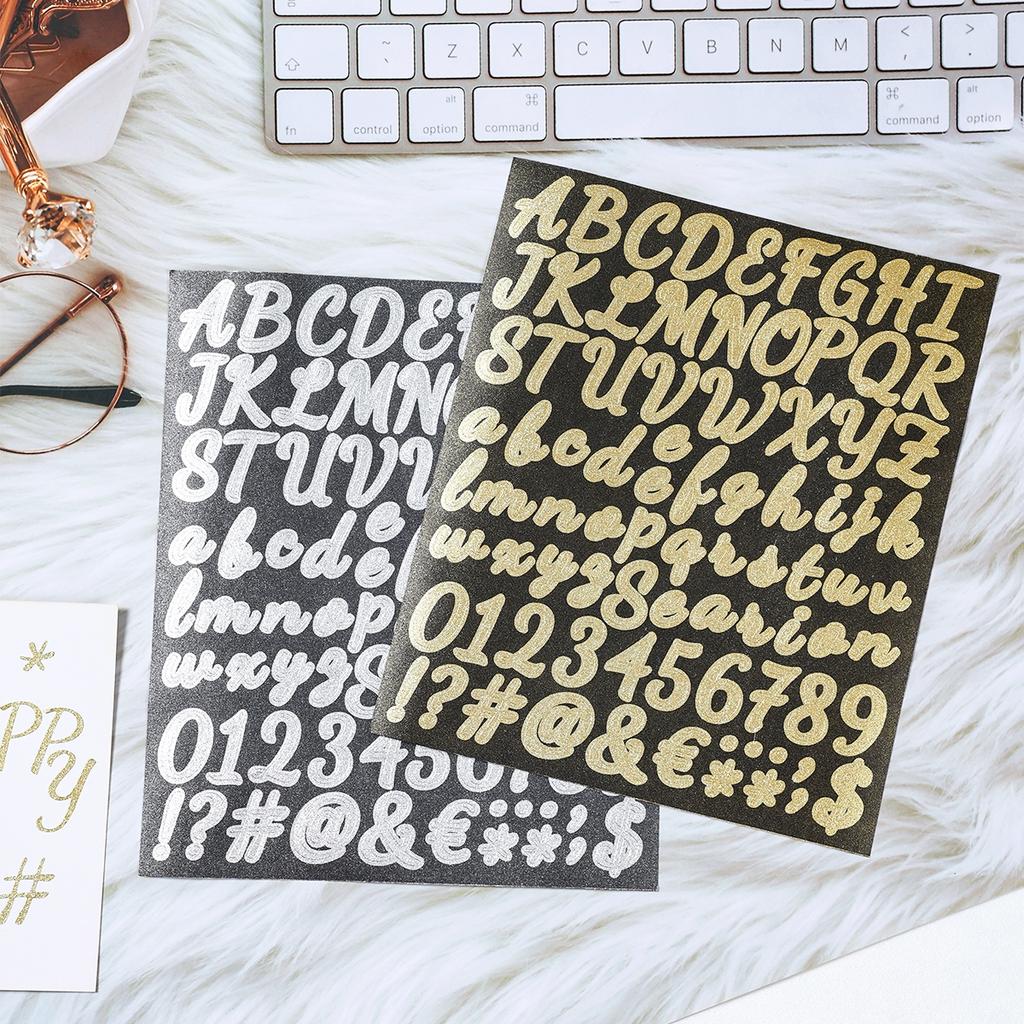 ~ ` Z X C V B N M < , > .
fn control alt option ⌘ command ⌘ command alt option
ABCDE
JKLMN
STUV
abcde
lmnop
wxyz
01234567
!?#@&€:;**;$
ABCDEFGHI
JKLMNOPQR
STUVWXYZ
abcdefghijk
lmnopqrstuv
wxyzgSearion
0123456789
!?#@&€**;$
*
PPy
#